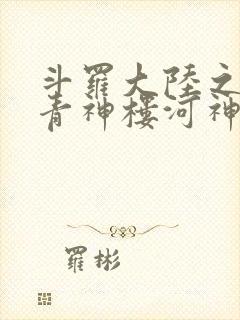 斗羅大陸之
青神樓河神
羅彬